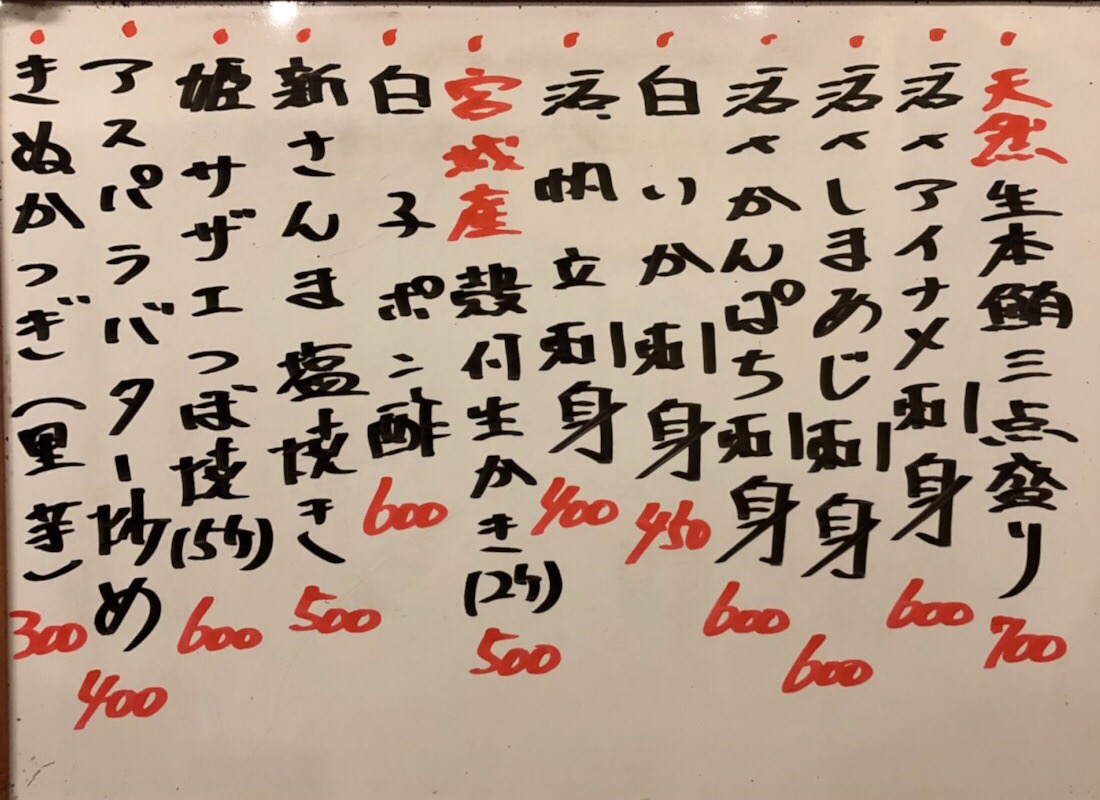 天然生本鮪三点盛り 700
活〆アイナメ刺身 600
活〆しまあじ刺身 600
活〆かんぱち刺身 600
白いか刺身 450
活帆立刺身 400
宮城産殻付生かき(2ケ) 500
白子ポン酢 600
新さんま塩焼き 500
姫サザエつぼ焼(5ケ) 600
アスパラバター炒め 400
きぬかつぎ(里芋) 300